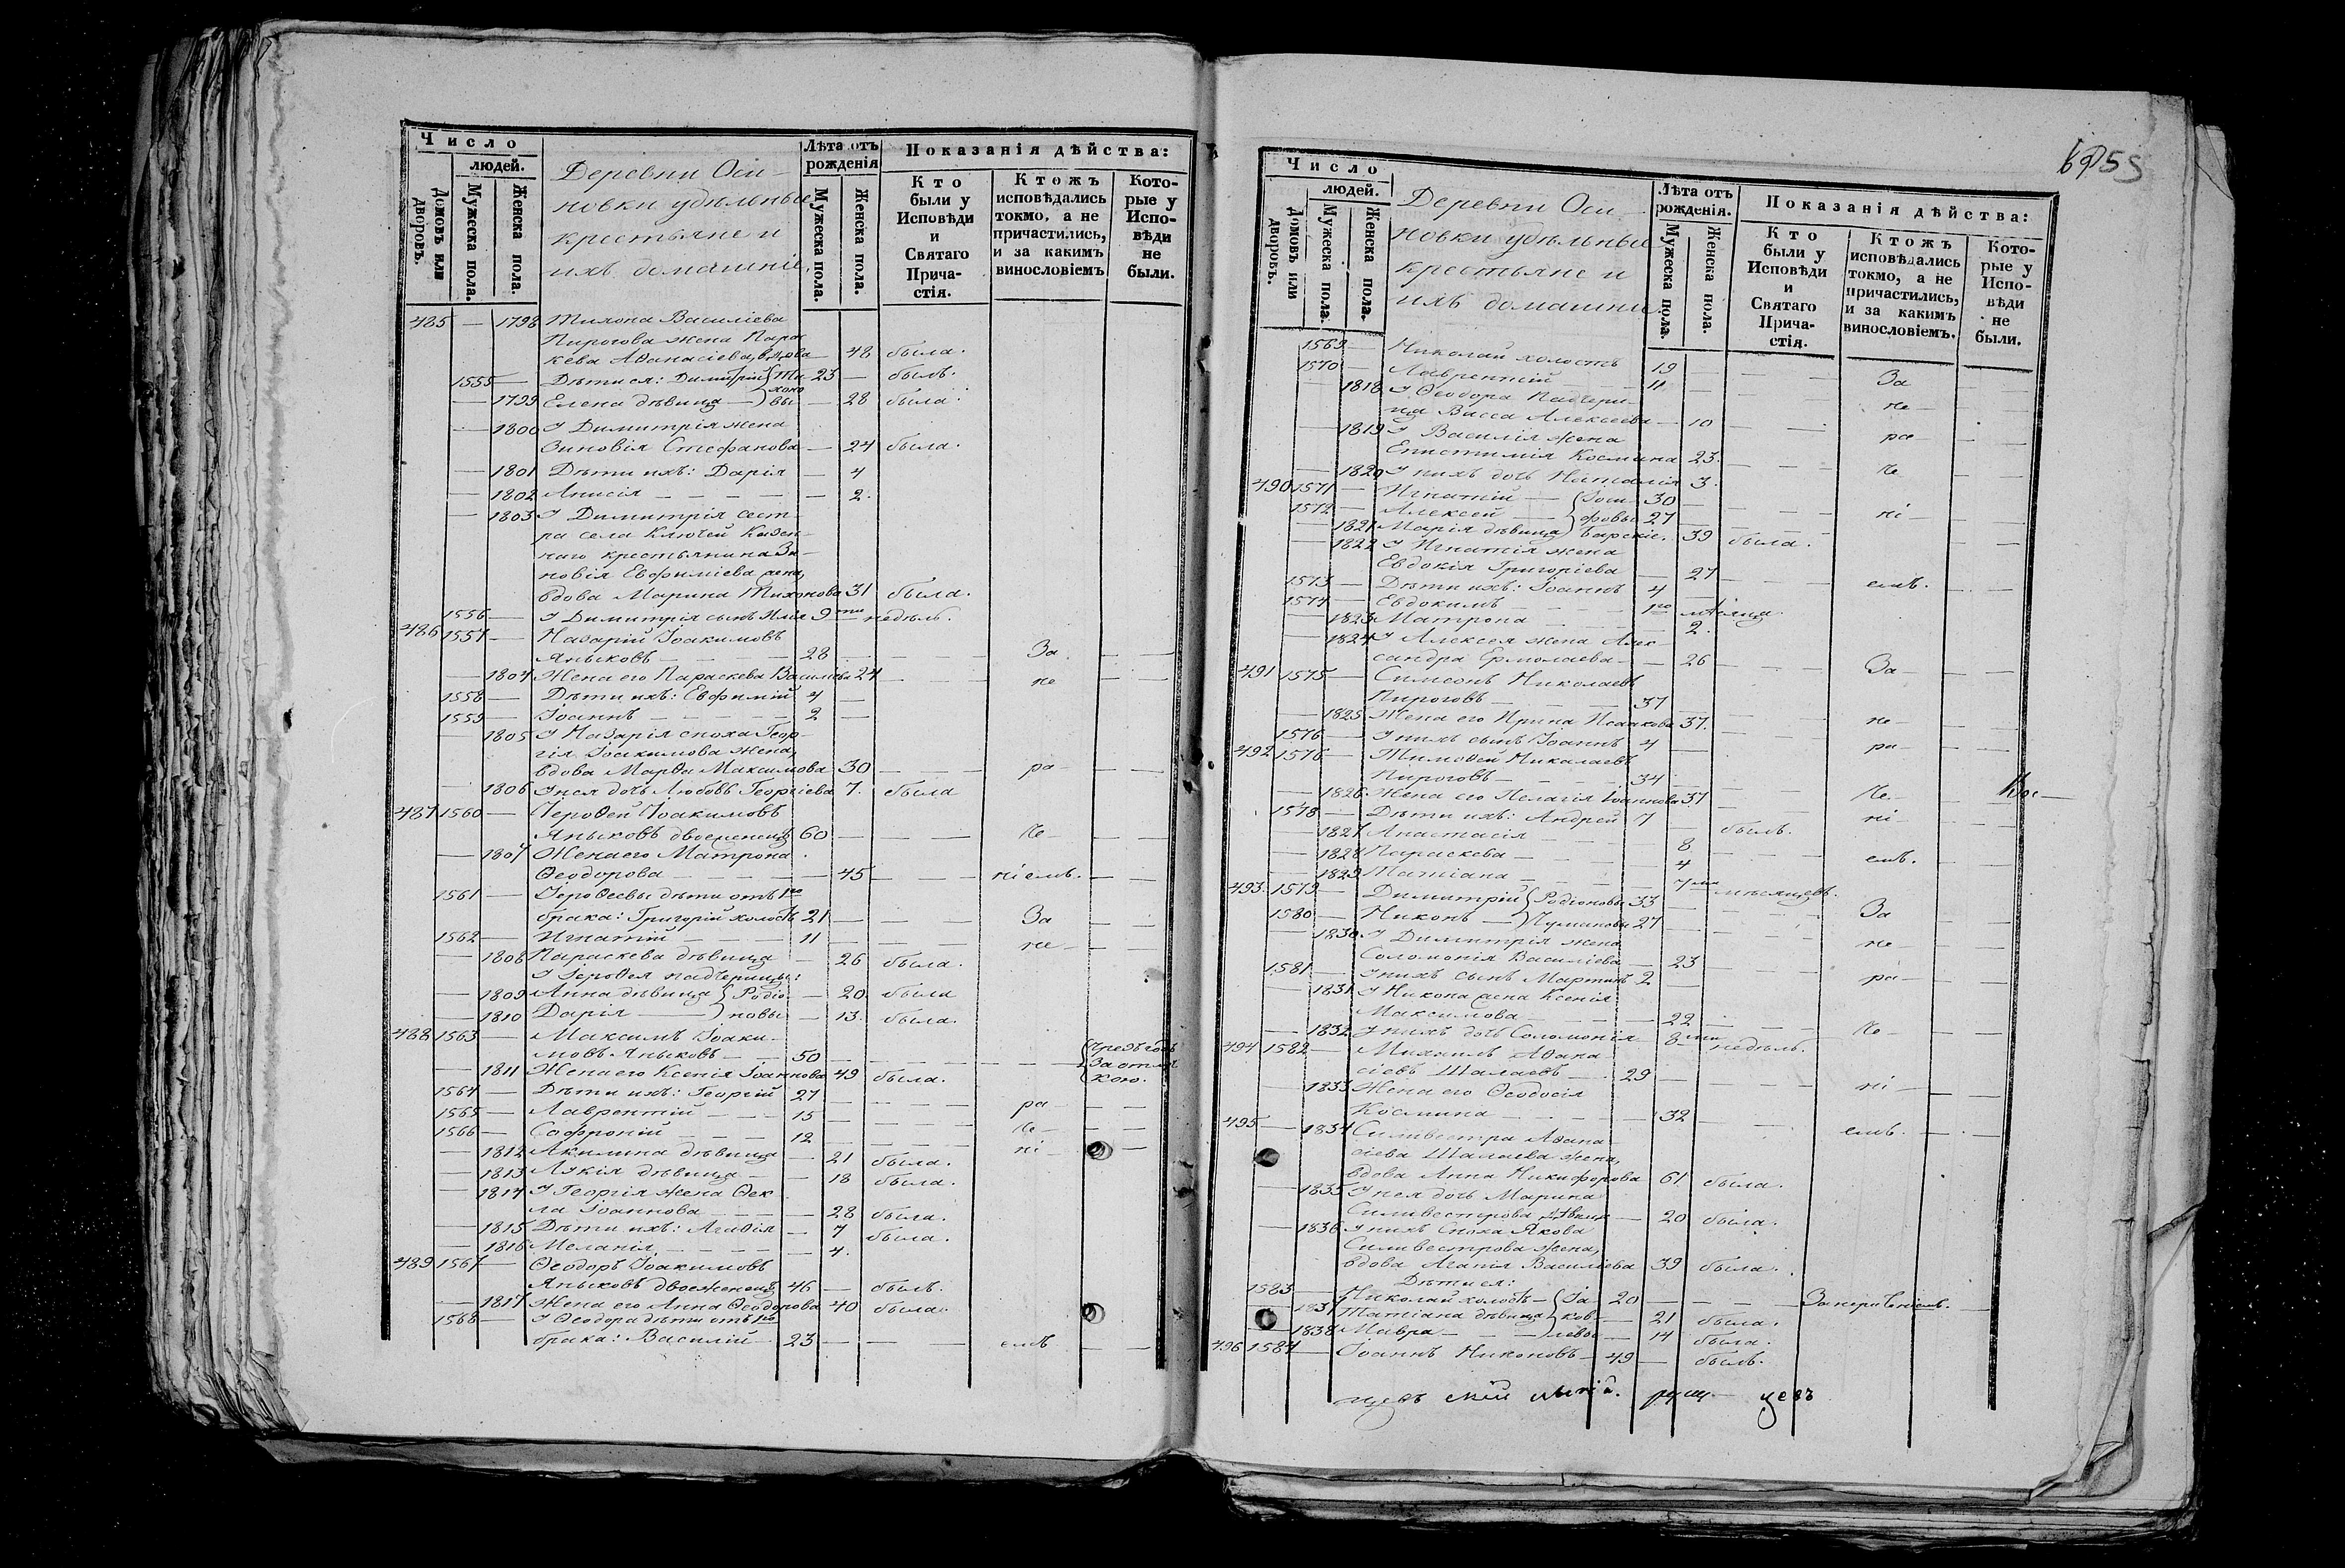 Число
людей.
Домовъ или дворовъ.
Мужеска пола.
Женска пола.
Деревни Оси-
новки удѣльные
крестьяне и
ихъ домашніе.
Лѣта отъ рожденія
Мужеска пола.
Женска пола.
Показанія дѣйства:
Кто были у Исповѣди и Святаго Прича-стія.
Ктожъ исповѣдались токмо, а не причастились, и за какимъ винословіемъ
Кото-рые у Испо-вѣди не были.
485 — 1798 Тихона Василіева
Пирогова жена Пара
кева Аѳанасіева, вдова — 48 была.
1555 — Дѣти ея: Димитрій Ти- 23 — былъ.
хоно
— 1799 Елена дѣвица — вы — 28 была.
— 1800 У Димитрія жена
Зиновія Стефанова — 24 была.
— 1801 Дѣти ихъ: Дарія — 4
— 1802 Анисія — — — — 2.
— 1803 У Димитрія сест-
ра села Ключей Казен-
наго крестьянина Зи-
новія Евфиміева жена,
вдова Марина Тихонова 31 была.
1556 — У Димитрія сынъ Илія 9ти недѣль.
486 1557 — Назарій Іоакимовъ
Яныковъ — — — 28 — — — За — —
— 1804 Жена его Параскева Василіева 24 — — не — —
1558 — Дѣти ихъ: Евфимій 4 —
1559 — Іоаннъ — — — — 2 —
— 1805 У Назарія сноха Геор-
гія Іоакимова жена,
вдова Марѳа Максимова 30 — — ра — — —
— 1806 У нея дочь Любовь Георгіева 7. была
487 1560 — Іероѳей Іоакимовъ
Яныковъ двоеженецъ 60 — — — че — — —
— 1807 Жена его Матрона
Ѳеодорова — — — — 45 — — ніемъ. — —
1561 — Іероѳеевы дѣти отъ 1го
брака: Григорій холостъ 21 — — — За — —
1562 — Игнатій — — — 11 — — — не — —
— 1808 Параскева дѣвица — 26 была.
У Іероѳея падчерицы:
— 1809 Анна дѣвица Родіо- — 20 была
— 1810 Дарія — новы — 13. была.
488 1563 — Максимъ Іоаки-
мовъ Яныковъ — — 50 — — — — Чрезъ годъ
За отлуч
кою.
— 1811 Жена его Ксенія Іоаннова 49 была.
1564 — Дѣти ихъ: Георгій 27 — — — ра — — —
1565 — Лаврентій — — — 15 — — — че — — —
1566 — Софроній — — — 12 — — — ні — —
— 1812 Акилина дѣвица — 21 была.
— 1813 Лукія дѣвица — — 18 была.
— 1814 У Георгія жена Ѳек
ла Іоаннова — — — 28 была.
— 1815 Дѣти ихъ: Агаѳія — 7 была.
— 1816 Меланія — — — — 4.
489 1567 — Ѳеодоръ Іоакимовъ
Яныковъ двоеженецъ 46 — былъ.
— 1817 Жена его Анна Ѳеодорова 40 была.
1568 — У Ѳеодора дѣти отъ 1го
брака: Василій — 23 — — — емъ — —
Число
людей.
Домовъ или дворовъ.
Мужеска пола.
Женска пола.
Деревни Оси-
новки удѣльные
крестьяне и
ихъ домашніе
Лѣта отъ рожденія.
Мужеска пола.
Женска пола.
Показанія дѣйства:
Кто были у Исповѣди и Святаго Прича-стія.
Ктожъ исповѣдались токмо, а не причастились, и за какимъ винословіемъ.
Кото-рые у Испо-вѣди не были.
1569 — Николай холостъ 19 — — — За — —
1570 — Лаврентій — — 11 — — — не — —
1818 У Ѳеодора падчери-
ца Васса Алексѣева — 10 — — ра — — —
— 1819 У Василія жена
Епистимія Космина 23. — — че — —
— 1820 У нихъ дочь Наталія 3.
490 1571 — Игнатій — Іоси- 30 — — — ні — — —
1572 — Алексѣй — фовы 27 —
— 1821 Марія дѣвица Барскіе. 39 была.
— 1822 У Игнатія жена
Евдокія Григоріева — 27 — — емъ. — —
1573 — Дѣти ихъ: Іоаннъ 4 —
1574 — Евдокимъ — — — 1го мѣсяца.
— 1823 Матрона — — — 2.
— 1824 У Алексѣя жена Алек
сандра Ермолаева — 26 — — За — —
491 1575 — Симеонъ Николаевъ
Пироговъ — — — 37
— 1825 Жена его Ирина Исаакова 37. — — не — — —
1576 — У нихъ сынъ Іоаннъ 4 —
492 1576 — Тимоѳей Николаевъ
Пироговъ — — — 34 — — ра —
— 1826 Жена его Пелагія Іоаннова 37 — — че — —
1578 — Дѣти ихъ: Андрей 7 — былъ. ні —
— 1827 Анастасія — — — 8
— 1828 Параскева — — — 4 емъ.
— 1829 Татіана — — — 7ми мѣсяцевъ.
493. 1579 — Димитрій Родіоновы 33 — — — За — —
1580 — Никонъ — Чумановы 27 — — — не — —
— 1830 У Димитрія жена
Соломонія Василіева — 23 — — ра — —
1581 — У нихъ сынъ Мартинъ 2 —
— 1831 У Никона жена Ксенія
Максимова — — — 22 — — че — —
— 1832 У нихъ дочь Соломонія 8ми недѣль.
494 1582 — Михаилъ Аѳана
сіевъ Шалаевъ — 29 — — — ні — —
— 1833 Жена его Ѳеодосія
Космина — — — 32 — — емъ. — —
495 — 1834 Силивестра Аѳана
сіева Шалаева жена,
вдова Анна Никифорова 61 была.
— 1835 У нея дочь Марина
Силивестрова дѣвица — 20 была.
— 1836 У нихъ сноха Якова
Силивестрова жена,
вдова Агапія Василіева 39 была.
Дѣти ея:
1583 — Николай холостъ — Іа 20 — — —
— 1837 Татіана дѣвица ков- — 21 была.
— 1838 Мавра — — левы — 14 была.
496 1584 — Іоаннъ Никоновъ — 49 — былъ.